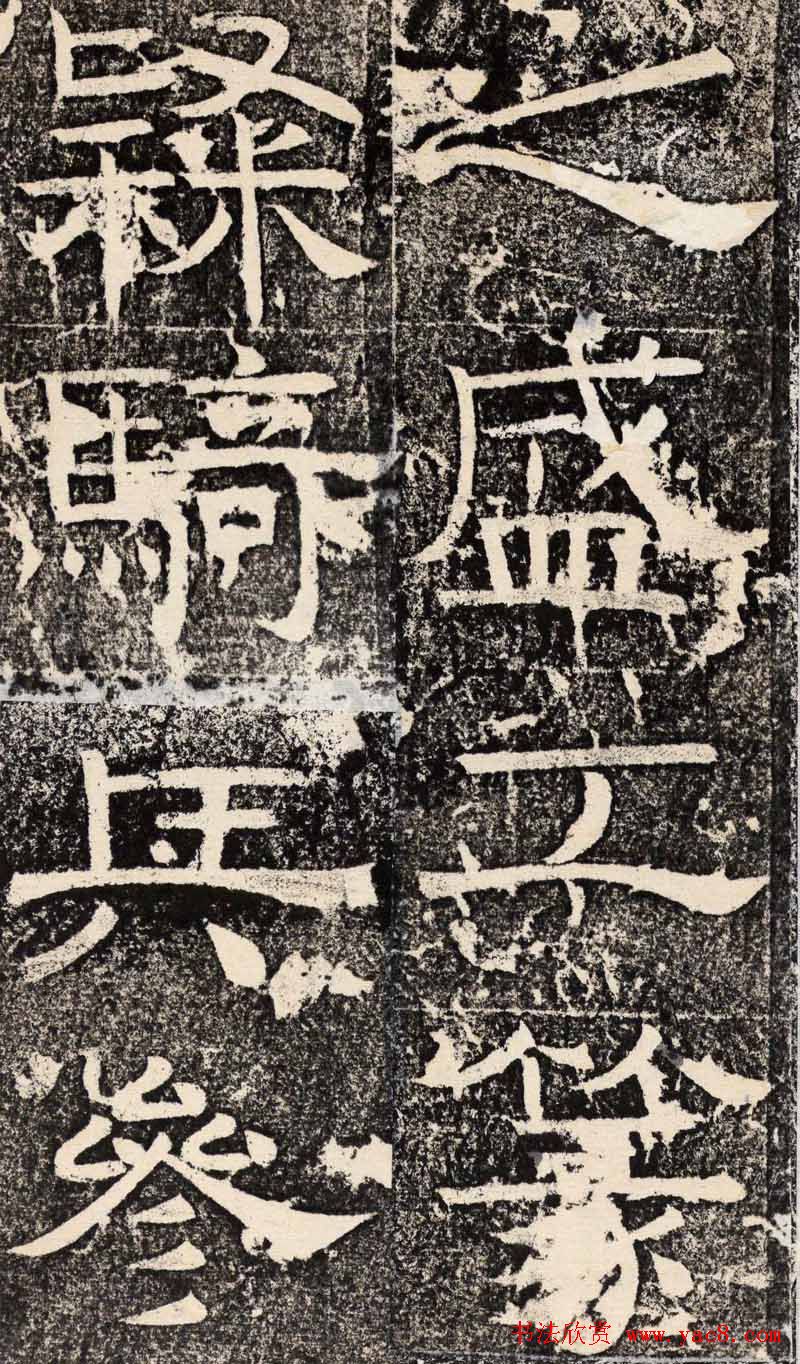 之盛工篆
隸騎兵參
书法欣赏 www.yac8.com